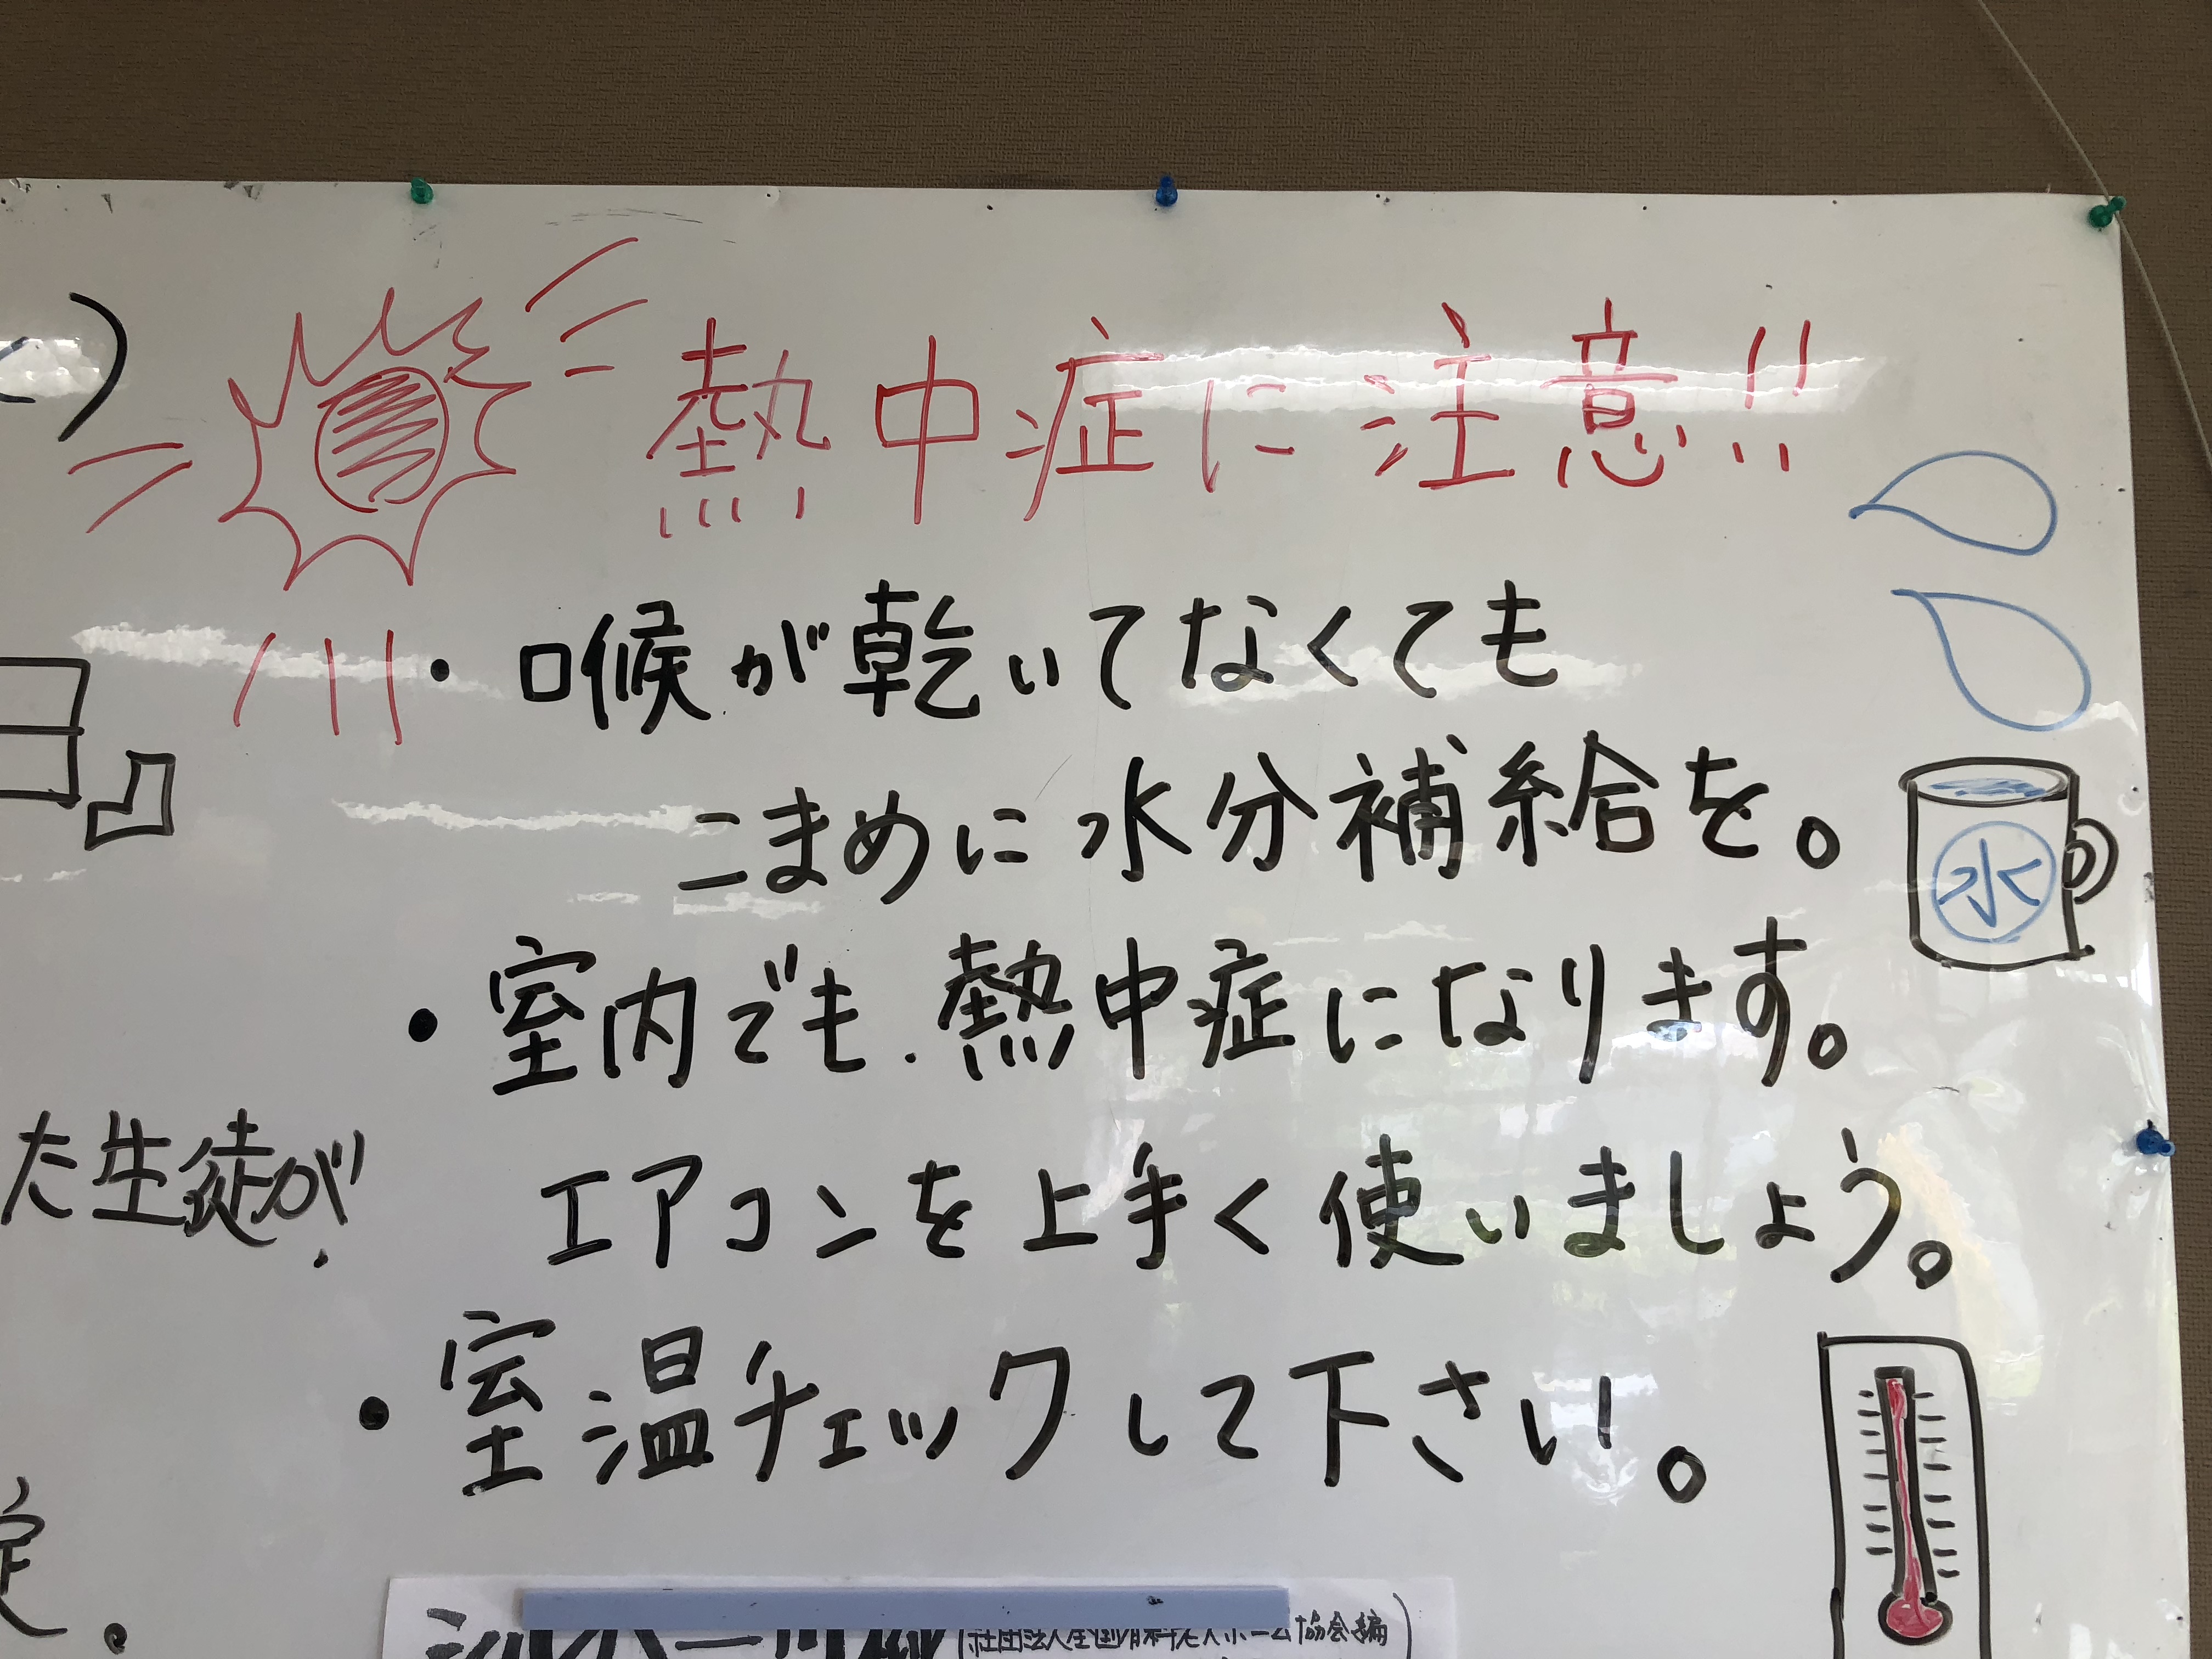 熱中症に注意!!
・喉が乾いてなくても
こまめに水分補給を。
水
・室内でも.熱中症になります。
た生徒が
エアコンを上手く使いましょう。
・室温チェックして下さい。
定。
協会編)